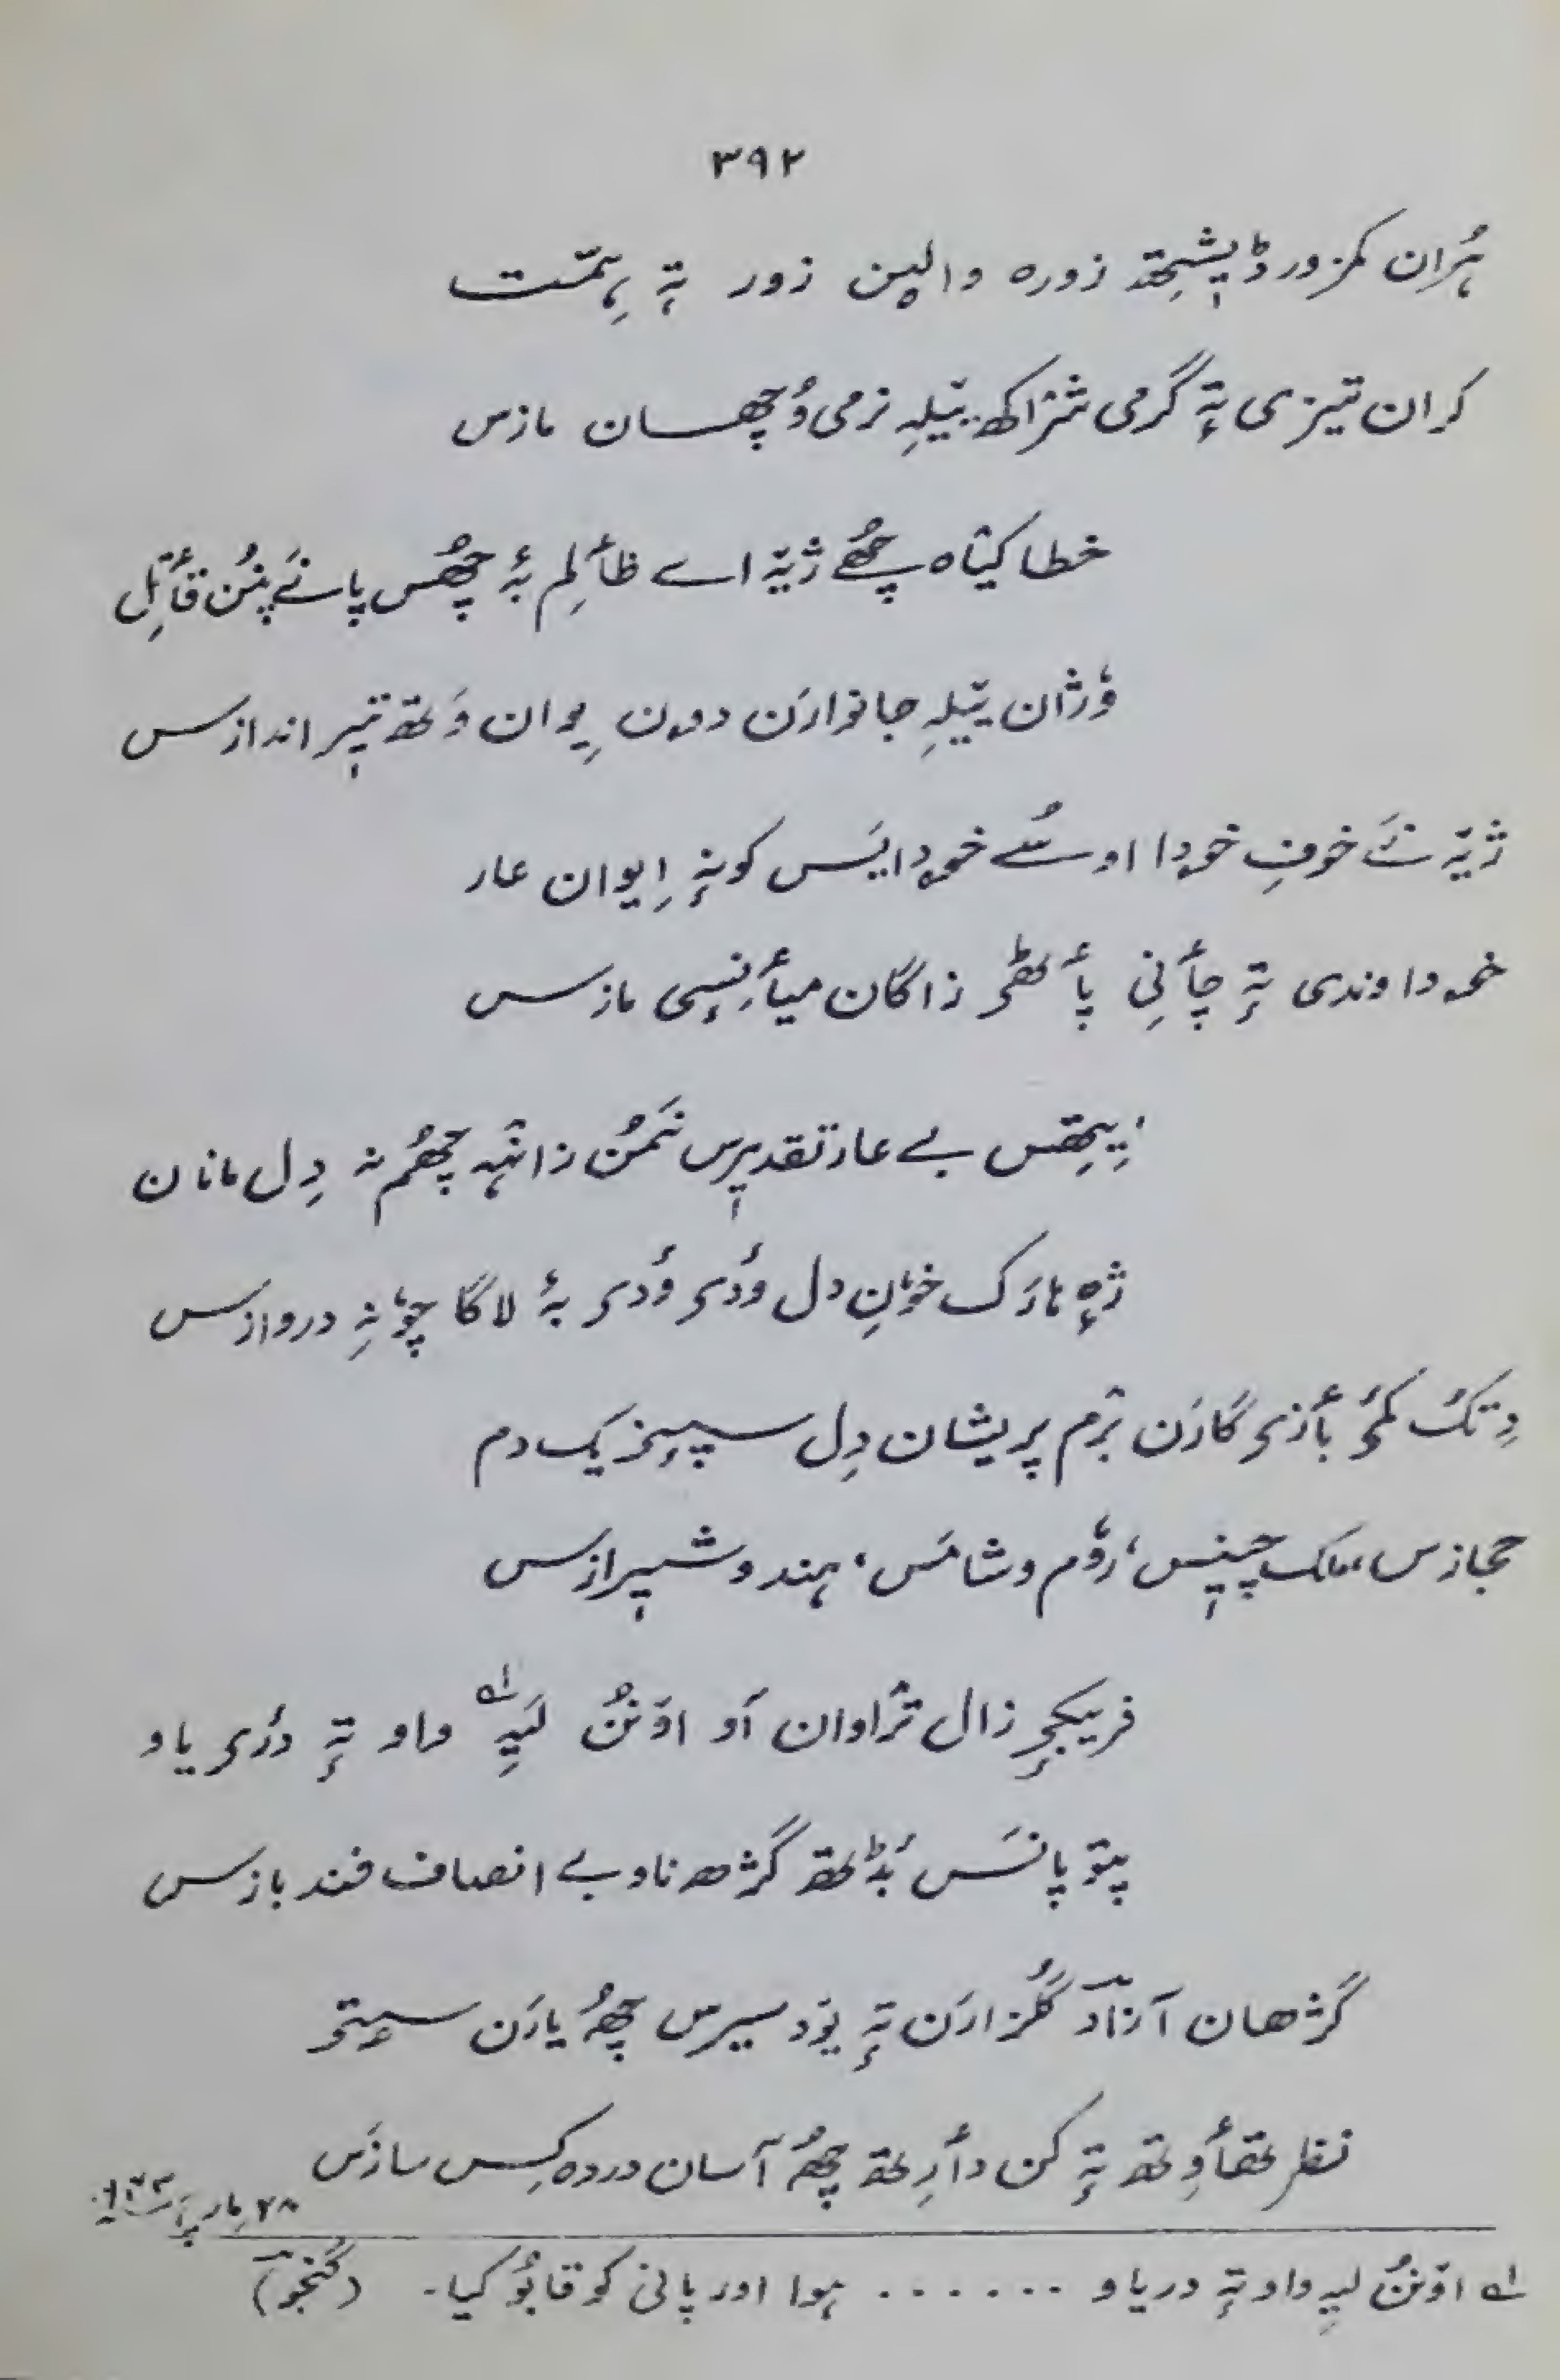 ۳۹۲
ہُران کمزور ڈیٖشِتھ زورہ والیٚن زور تہٕ ہِمّت
کران تیزی تہٕ گرمی شژاکھ ییٚلہِ نرمی وُچھسان مازس
خطا کیٛاہ چھُے ژیٚہ اے ظٲلِم بہٕ چھُس پانَے پنُن قٲتِل
وٕژان ییٚلہِ جانوارَن دوٚن یِوان وَتھ تیٖر اندازس
ژیٚہ نَے خوفِ خوٚدا اوسُے خوٚدایَس کونہٕ اِیوان عار
خوٚداوندی تہٕ چٲنِی پٲٹھۍ زاگان میٲنِسٕی مازس
بے عار تقدیٖرس نَمُن زانٛہہ چھُم نہ دِل مانان
ژٕہ ہارَکھ خوٗنِ دل وٕدۍ وٕدۍ بہٕ لاگا چوٗنہِ دروازَس
دِتکھ کٔمۍ بٲزۍ گارَن برٛم پریشان دِل سپٕنۍ یک دم
حجازس، ملک چیٖنس، روٗم و شامَس، ہند و شیٖرازس
فریبکۍ زال ترٛاوان آو اوٚنُن لَیہِ ؎۱ واو تہٕ دٔری یاو
پتوٚ پانَس بُڈتھ گژھہ ناو بے انصاف فند بازس
گژھان آزادؔ گُلزارَن تہٕ یوٚد سیرس چھُ یارَن سۭتۍ
نظر تھٲوِتھ تہٕ کن دٲرِتھ چھُ آسان دردہ کِس سازَس
؎۱ اوٚنُن لیہِ واو تہٕ دریاو ۔ ۔ ۔ ۔ ۔ ۔ ہوا اور پانی کو قابوٗ کیا۔ (گنجوؔ)